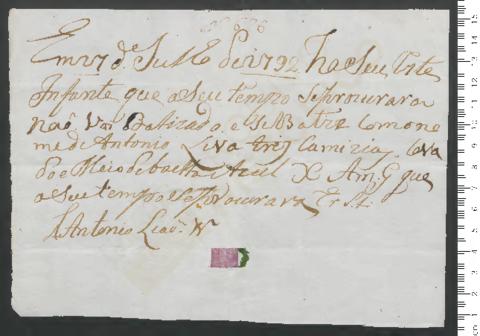 Em 27 de Julho de 1792 Naseu Este
Infante que a Seu tempo Se Procurara
naõ Vai Batizado e Se Batize Com o no
me de Antonio Leva tres Camizas
e Meio de baeta Azul X Am G que
a Seu tempo Se Procurara
Antonio